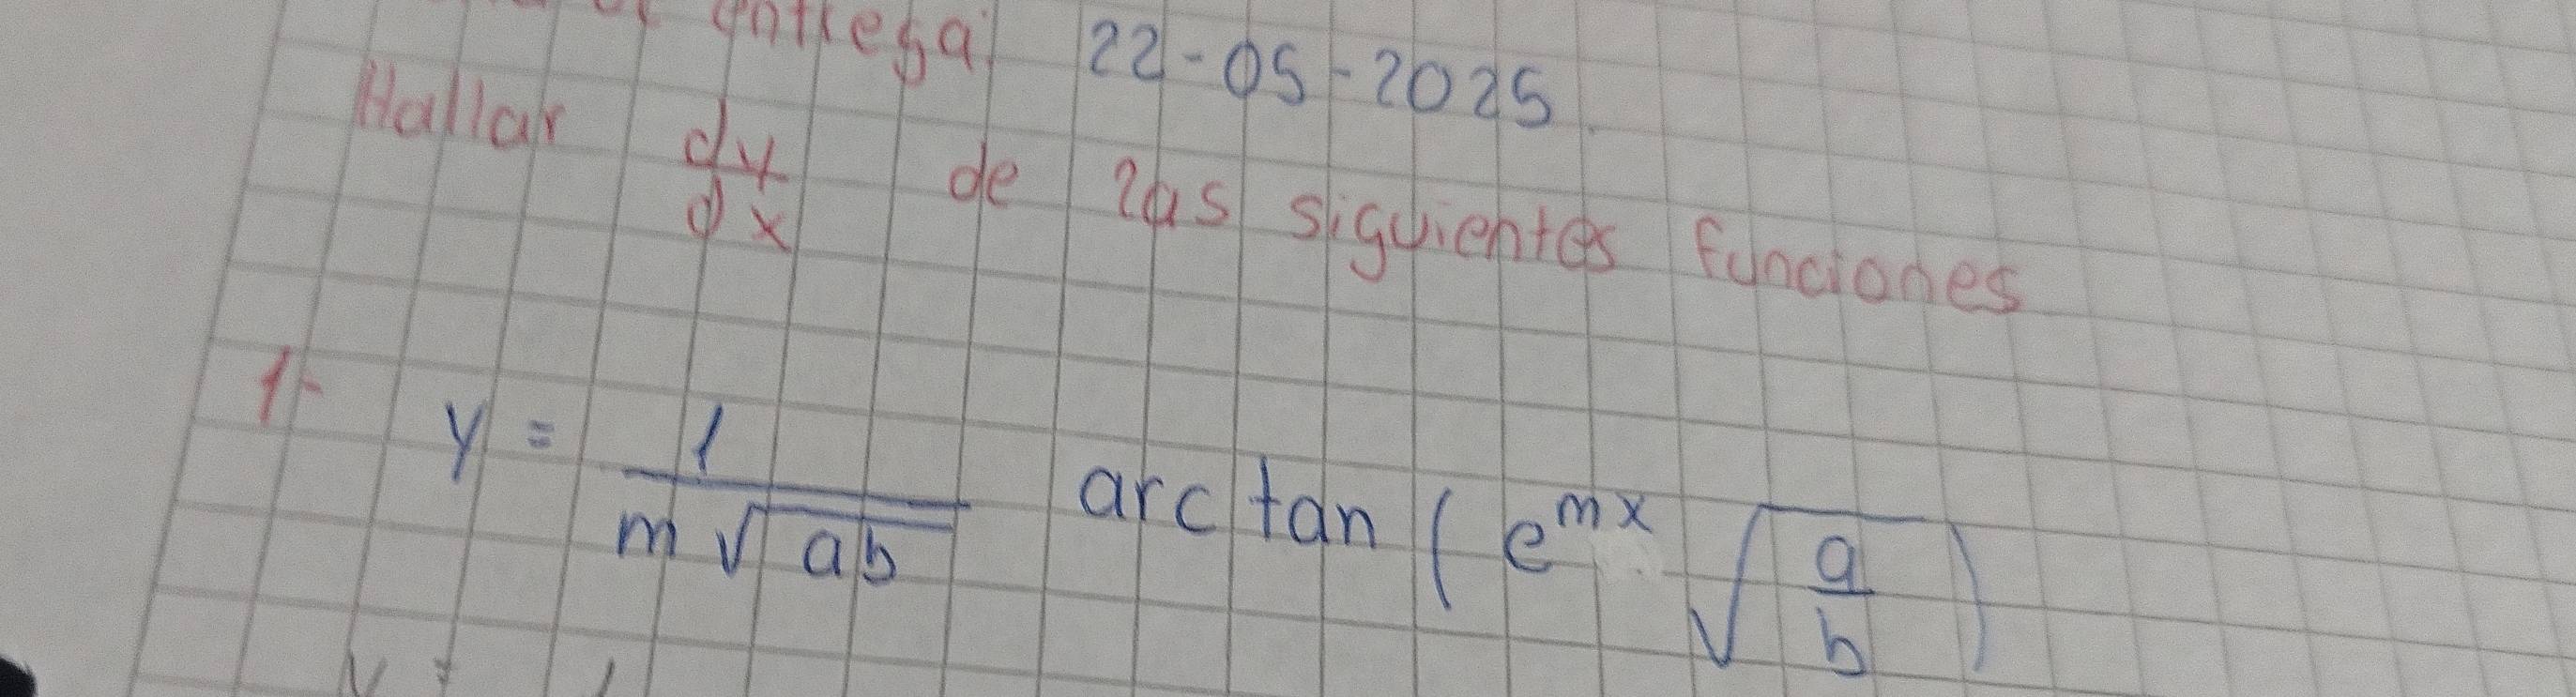 entrega 22-05-2025
Hallar dy/dx de las siguientes funciones
1- y = 1/(m√(ab)) arc tan (e^(mx) √(a/b))